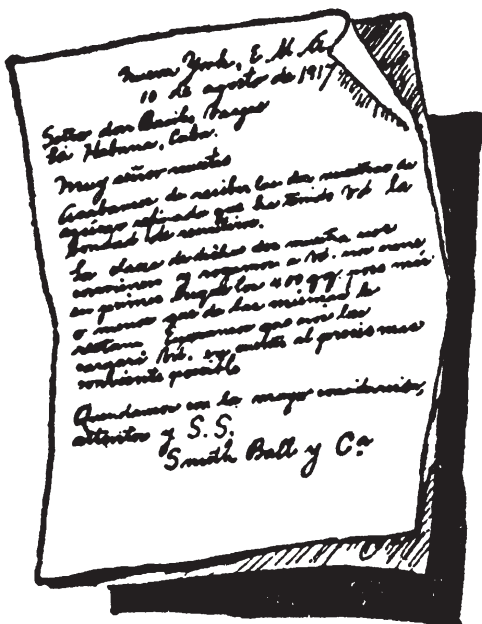 Nueva York, E U A
10 de agosto de 1917
Señor don Basilio Vargas
La Habana, Cuba.
Muy señor nuestro
Acabamos de recibir las dos muestras de
azúcar refinado que ha tenido Vd la
bondad de remitirnos.
La clase de dichas dos muestras nos
conviene y rogamos a Vd. nos
en primer lugar los 400 qq. poco más
o menos que de las mismas le
restan. Esperamos que nos las
cargará Vd. en cuenta al precio mas
conveniente posible
Quedamos con la mayor consideración,
atentos y S. S.
Smith Ball y Cª